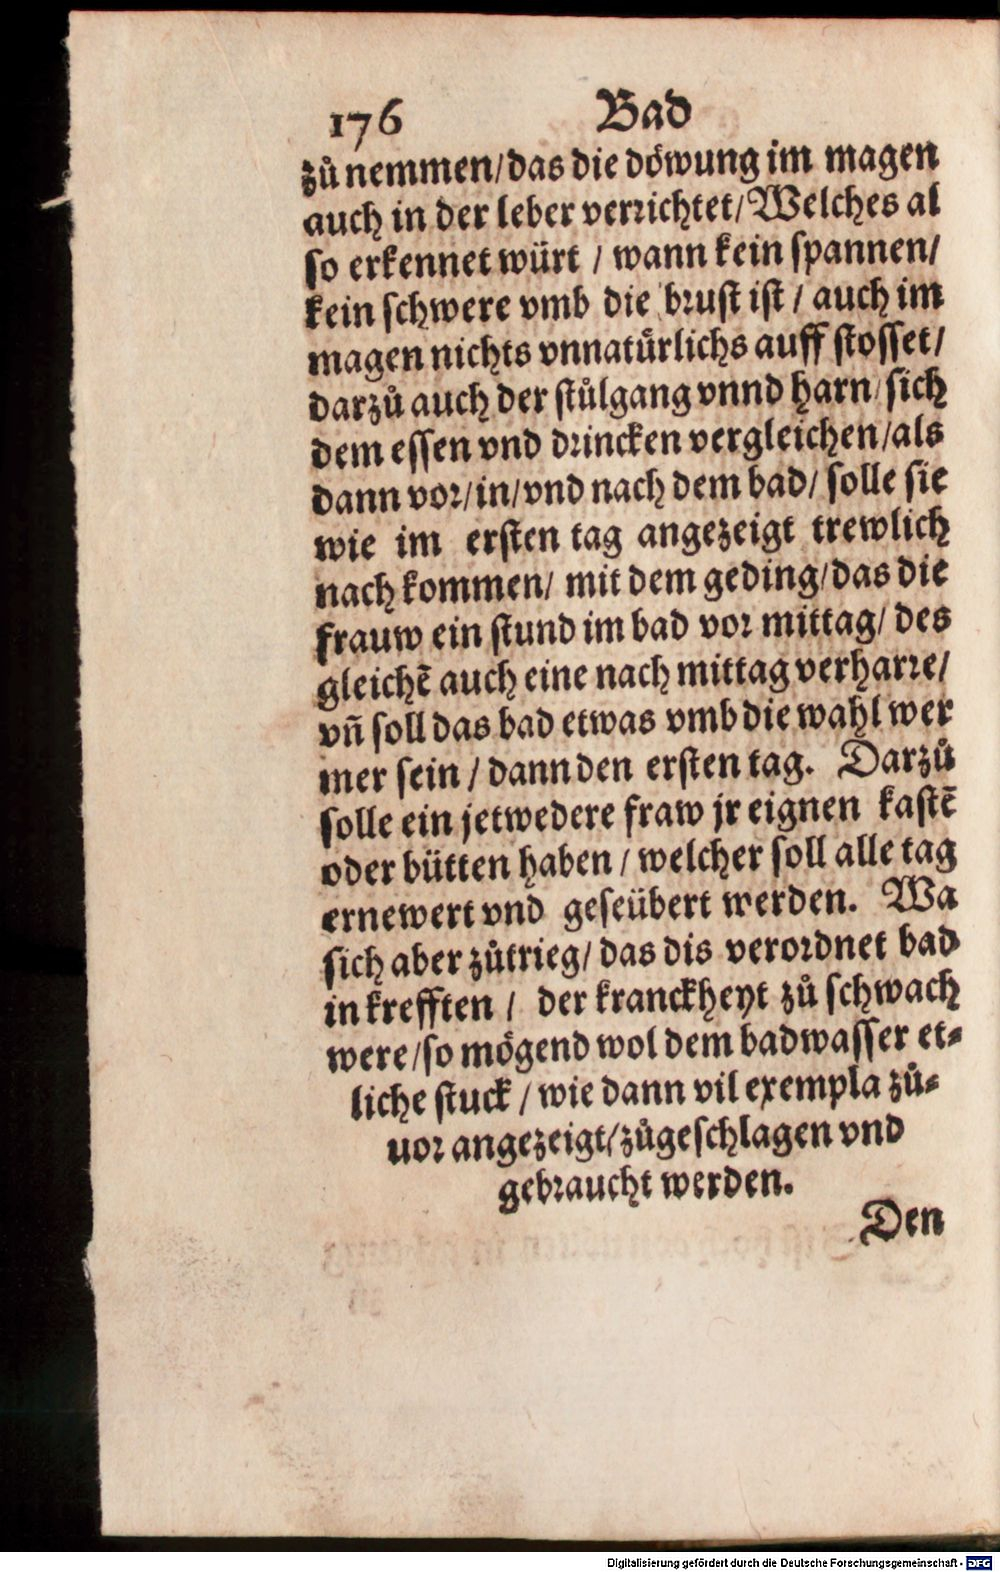 176 Bad
zů nemmen/das die döwung im magen
auch in der leber verrichtet/Welches al
so erkennet würt / wann kein spannen/
kein schwere vmb die brust ist / auch im
magen nichts vnnatürlichs auff stosset/
darzů auch der stůlgang vnnd harn/sich
dem essen vnd drincken vergleichen/als
dann vor/in/vnd nach dem bad/ solle sie
wie im ersten tag angezeigt trewlich
nach kommen/ mit dem geding/das die
frauw ein stund im bad vor mittag/ des
gleichẽ auch eine nach mittag verharre/
vñ soll das bad etwas vmb die wahl wer
mer sein / dann den ersten tag. Darzů
solle ein jetwedere fraw jr eignen kastẽ
oder bütten haben / welcher soll alle tag
ernewert vnd geseübert werden. Wa
sich aber zůtrieg/ das dis verordnet bad
in krefften / der kranckheyt zů schwach
were/so mögend wol dem badwasser et-
liche stuck / wie dann vil exempla zů-
uor angezeigt/zůgeschlagen vnd
gebraucht werden.
Den
Digitalisierung gefördert durch die Deutsche Forschungsgemeinschaft - DFG